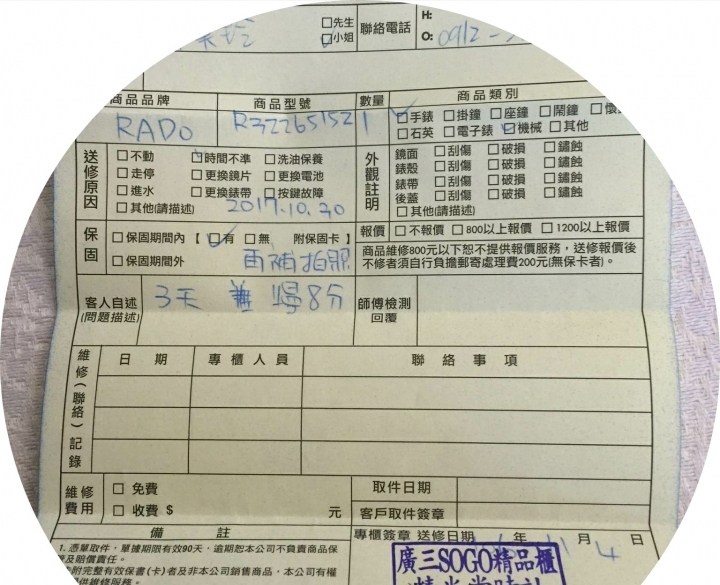 □先生 聯絡電話 H:
□小姐 O: 0912-
商品品牌 商品型號 數量 商品類別
RADO R32265152 1 □手錶 □掛鐘 □座鐘 □鬧鐘 □懷
□石英 □電子錶 □機械 □其他
送修原因 □不動 □時間不準 □洗油保養
□走停 □更換鏡片 □更換電池
□進水 □更換錶帶 □按鍵故障
□其他(請描述) 2017.10.30
外觀註明 鏡面 □刮傷 □破損 □鏽蝕
錶殼 □刮傷 □破損 □鏽蝕
錶帶 □刮傷 □破損 □鏽蝕
後蓋 □刮傷 □破損 □鏽蝕
□其他(請描述)
保固 □保固期間內【□有 □無 附保固卡】
□保固期間外 再補拍照
報價 □不報價 □800以上報價 □1200以上報價
商品維修800元以下恕不提供報價服務，送修報價後
不修者須自行負擔郵寄處理費200元(無保卡者)。
客人自述 3天 慢8分 師傅檢測
(問題描述) 回覆
維修(聯絡)記錄 日期 專櫃人員 聯絡事項
維修費用 □ 免費 取件日期
□ 收費 $ 元 客戶取件簽章
備註 專櫃簽章 送修日期 年 11 月 4 日
1. 憑單取件，單據期限有效90天，逾期恕本公司不負責商品保
及賠償責任。
附完整有效保書(卡)者及非本公司銷售商品，本公司有權
提供維修服務。
廣三SOGO精品櫃